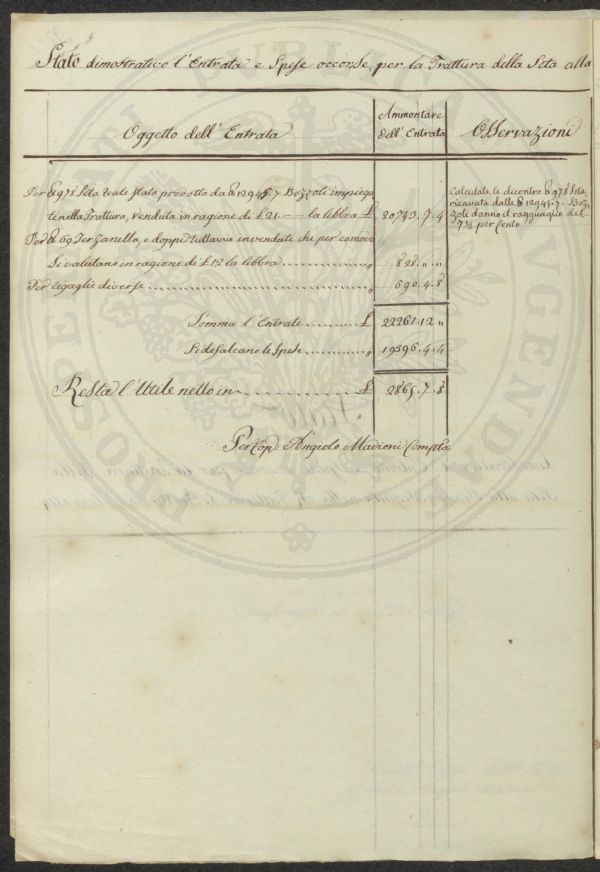 Stato dimostrativo l'Entrata e Spese occorse, per la Trattura della Seta alla
Oggetto dell'Entrata
Ammontare
dell'Entrata
Osservazioni
Per ℔ 978 Seta reale stato prodotto da ℔ 12945.7 Bozzoli impiega
ti nella Trattura, venduta in ragione di £ 21.— la libbra £ 20743.7.4
Per ℔ 69 Terzanella, e doppi tuttavia invenduti che per comodo
si valutano in ragione di £ 12 la libbra ............ „ 828. „ . „
Per regaglie diverse ............ „ 690.4.8
Somma l'Entrate ......... £ 22261.12 „
Si defalcano le Spese ......... „ 19396.4.4
Resta l'Utile netto in ............ £ 2865.7.8
Calcolate le dicontro ℔ 978 Seta,
ricavata dalle ℔ 12945.7. Boz
zoli danno il ragguaglio del
7½ per Cento
Per Cop: Angiolo Madioni Compta
PROSPE PUBLICAE AUGENDAE